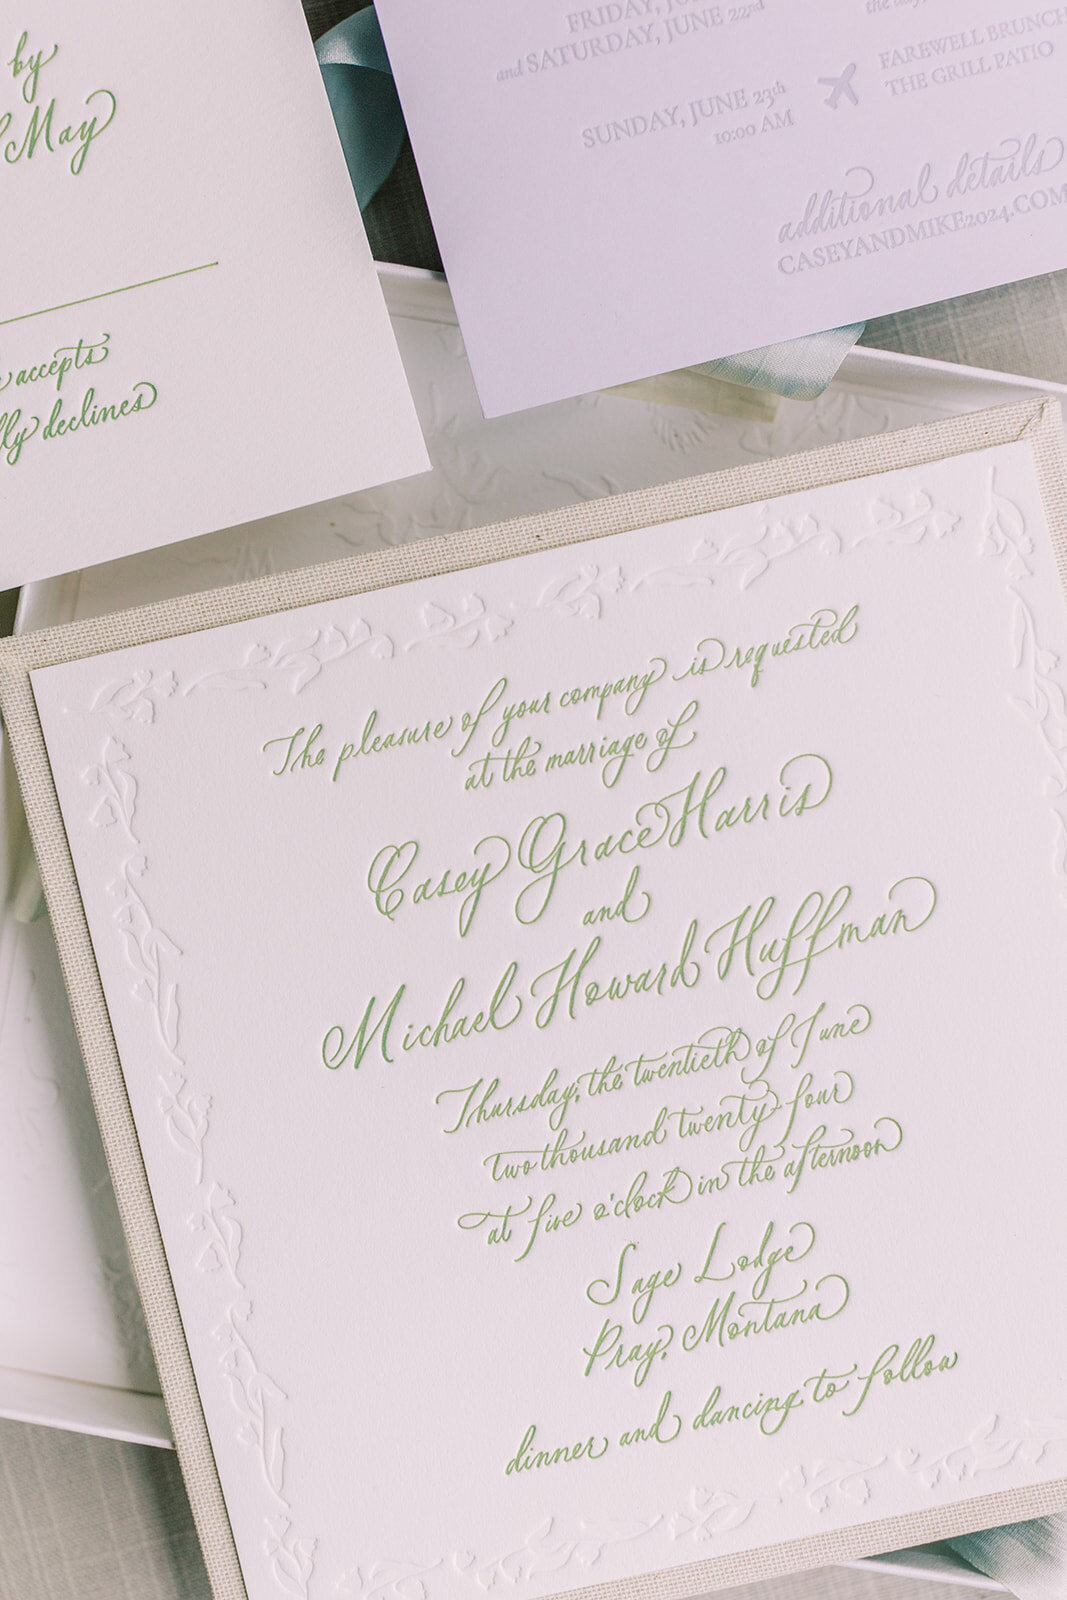 by
May
accepts
declines
FRIDAY,
and SATURDAY, JUNE 22nd
the day,
SUNDAY, JUNE 23th
10:00 AM
FAREWELL BRUNCH
THE GRILL PATIO
additional details
CASEYANDMIKE2024.COM
The pleasure of your company is requested
at the marriage of
Casey Grace Harris
and
Michael Howard Huffman
Thursday, the twentieth of June
two thousand twenty-four
at five o'clock in the afternoon
Sage Lodge
Pray, Montana
dinner and dancing to follow